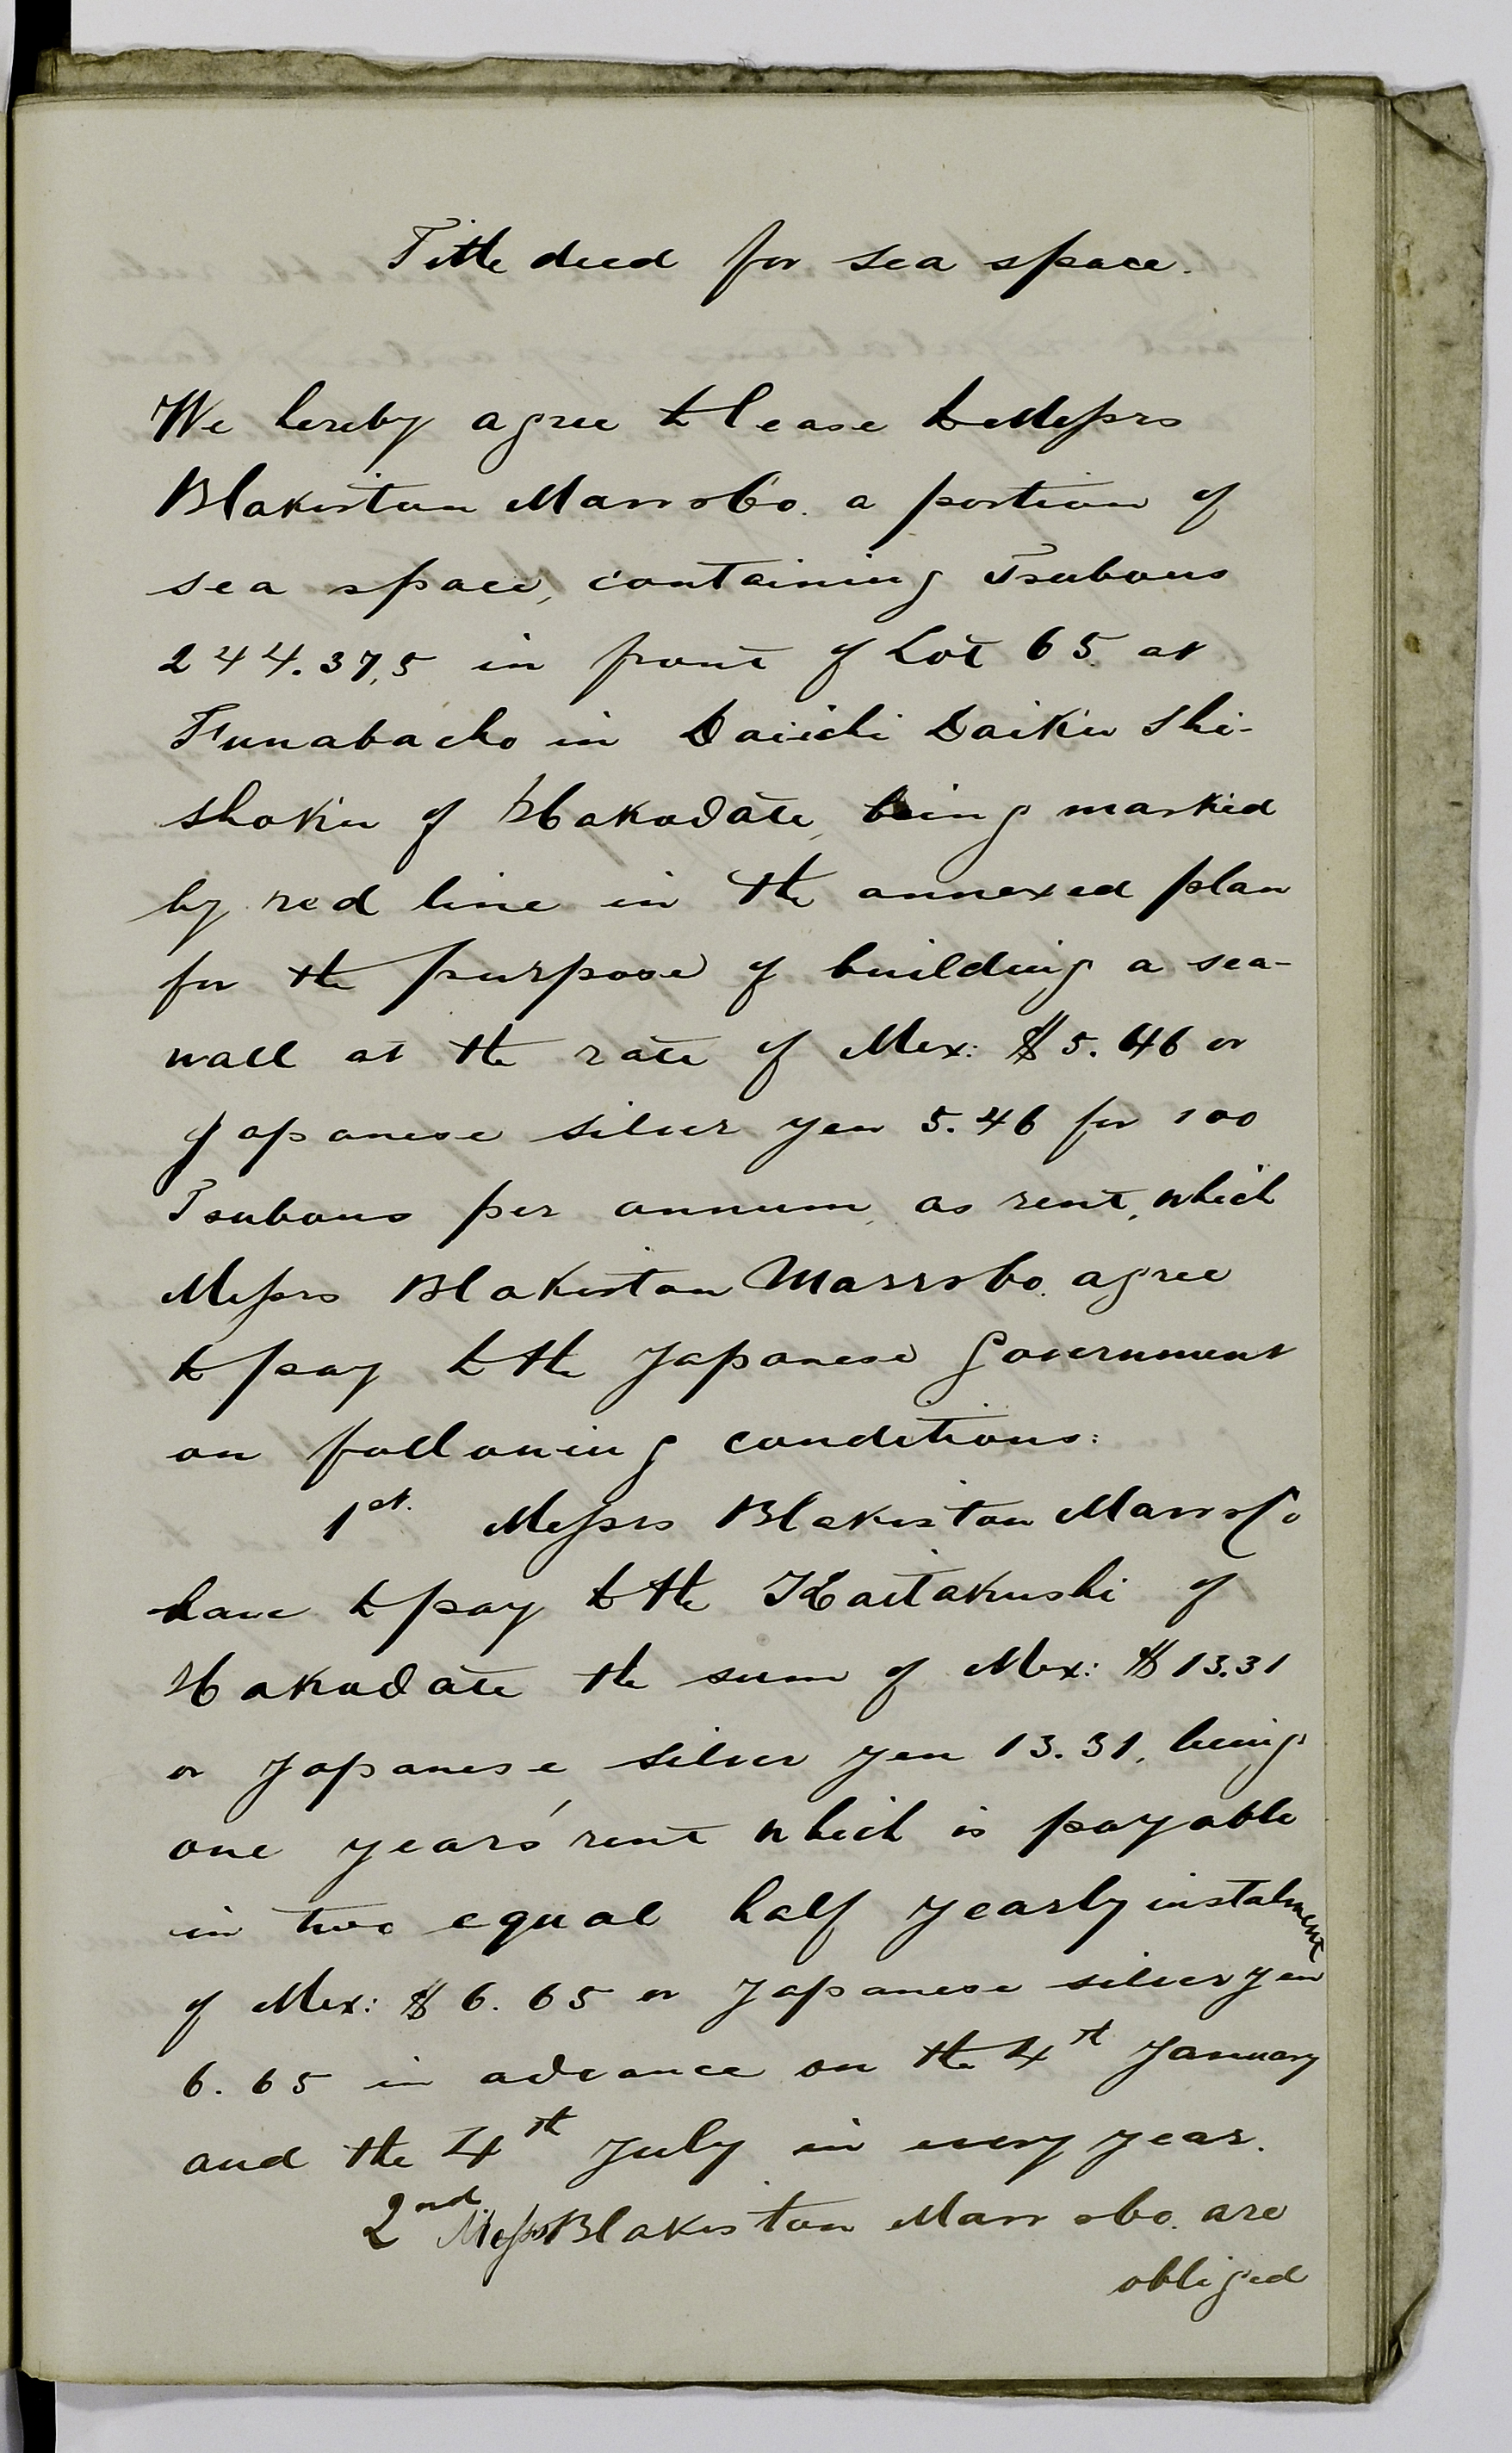 Title deed for sea space.
We hereby agree to lease to Messrs
Blakiston Marr & Co. a portion of
sea space, containing Tsubous
244.37,5 in front of Lot 65 at
Funabacho in Daiichi Daiku Shi-
shoku of Hakodate, being marked
by red line in the annexed plan
for the purpose of building a sea-
wall at the rate of Mex: $5.46 or
Japanese silver yen 5.46 for 100
Tsubous per annum, as rent, which
Messrs Blakiston Marr & Co. agree
to pay to the Japanese Government
on following conditions:
1st. Messrs Blakiston Marr & Co
have to pay to the Kaitakushi of
Hakodate the sum of Mex: $13.31
or Japanese silver yen 13.31, being
one years' rent which is payable
in two equal half yearly instalment
of Mex: $6.65 or Japanese silver yen
6.65 in advance on the 4th January
and the 4th July in every year.
2nd Messrs Blakiston Marr & Co. are
obliged